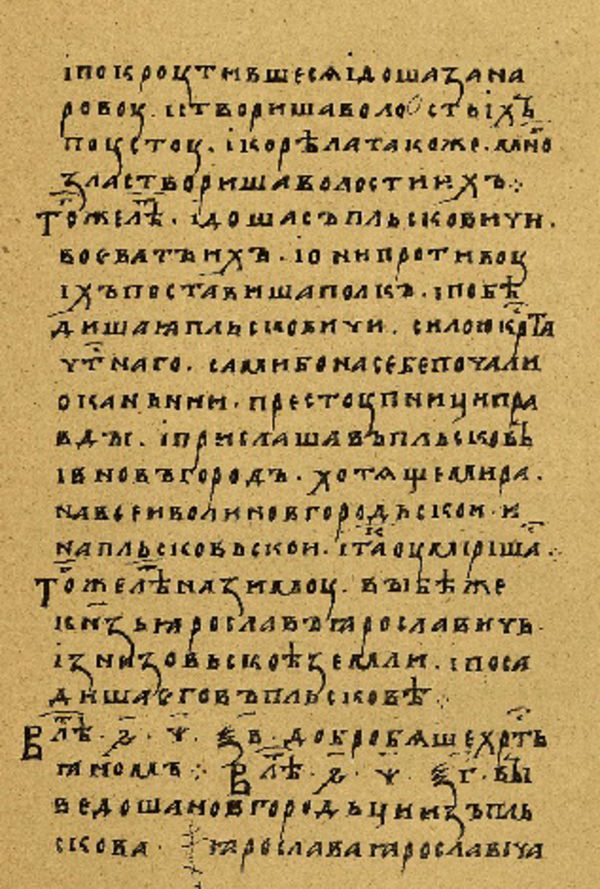 іпокроцтившесѧ ідошазана
ровоц. істворишаволостьіхъ
поцстоц. ікорѣлатакоже. мно
ꙁластворишаволостиихъ⁘
Тожелѣ҃. ідошасъпльсковичи.
воєватъихъ. іонипротивоц
іхъпоставишаполкъ. іпобѣ
дишаꙗпльсковичи. силоюкр҃та
чт҃наго. самибонасебепочали
оканьнии. престоцпниципра
вдъі. іприслашавъпльсковъ
івновъгородъ. хотѧщемира.
навсеиволиновгородьскои. и
напльсковьскои. ітакоцмірішa⁘
Тожелѣ҃назимоц. выбѣже
кн҃зьꙗрославъꙗрославичь.
ізнизовьскоѣземли. іпоса
дишаєговъпльсковѣ⁘
Влѣ҃. ҂ѕ҃. ѱ҃. ѯв҃. добробѧшехр҃ть
ꙗномъ⁘ Влѣ҃. ҂ѕ҃. ѱ҃. ѯг҃. вы
ведошановгородьциизъпль
скова. ꙗрославаꙗрославіча